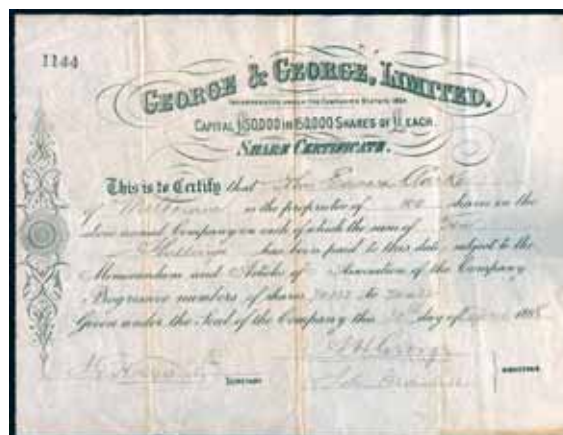 1144
GEORGE & GEORGE, LIMITED.
INCORPORATED UNDER THE COMPANIES STATUTE 1864.
CAPITAL £150,000 IN 150,000 SHARES OF £1 EACH.
SHARE CERTIFICATE.
This is to Certify that John Clarke
of Melbourne is the proprietor of 100 shares in the
above named Company on each of which the sum of
Shillings has been paid to this date subject to the
Memorandum and Articles of Association of the Company
Progressive numbers of shares to
Given under the Seal of the Company this day of 1888
SECRETARY
DIRECTORS